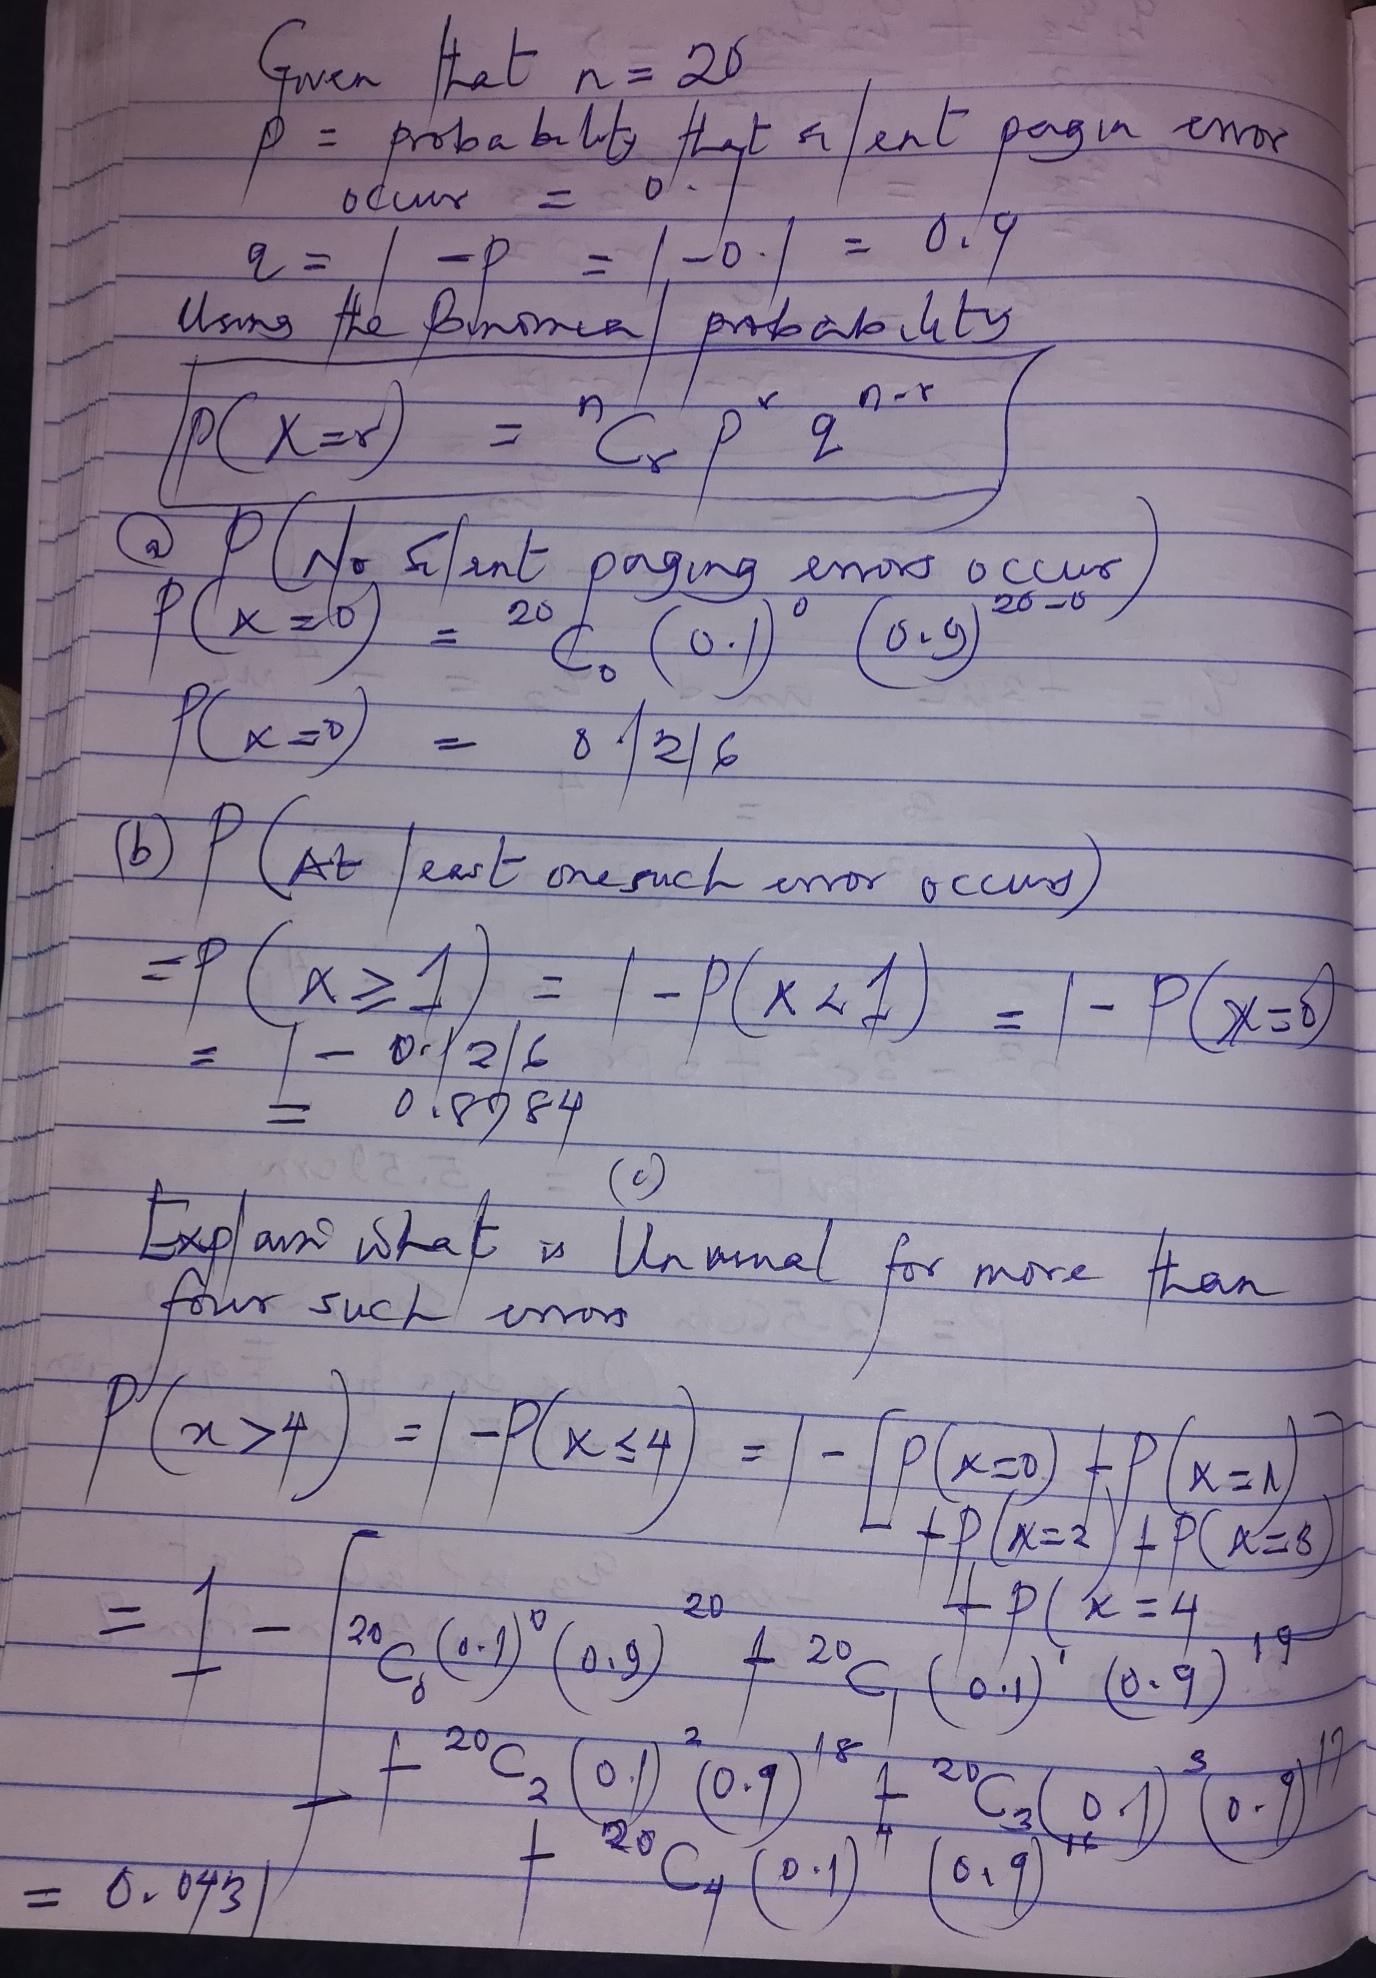 Given that n = 20
p = probability that silent pagin error
occur = 0.1
q = 1 - p = 1 - 0.1 = 0.9
Using the Binomial probability
P(X=r) = ⁿCᵣ pʳ qⁿ⁻ʳ
(a) P(No silent paging errors occur)
P(x=0) = ²⁰C₀ (0.1)⁰ (0.9)²⁰⁻⁰
P(x=0) = 0.1216
(b) P(At least one such error occurs)
= P(x ≥ 1) = 1 - P(x < 1) = 1 - P(x=0)
= 1 - 0.1216
= 0.8784
(c)
Explain what is Unusual for more than
four such errors
P(x>4) = 1 - P(x ≤ 4) = 1 - [P(x=0) + P(x=1)
+ P(x=2) + P(x=3)
+ P(x=4]
= 1 - [²⁰C₀ (0.1)⁰ (0.9)²⁰ + ²⁰C₁ (0.1)¹ (0.9)¹⁹
+ ²⁰C₂ (0.1)² (0.9)¹⁸ + ²⁰C₃ (0.1)³ (0.9)¹⁷
+ ²⁰C₄ (0.1)⁴ (0.9)¹⁶
= 0.0431